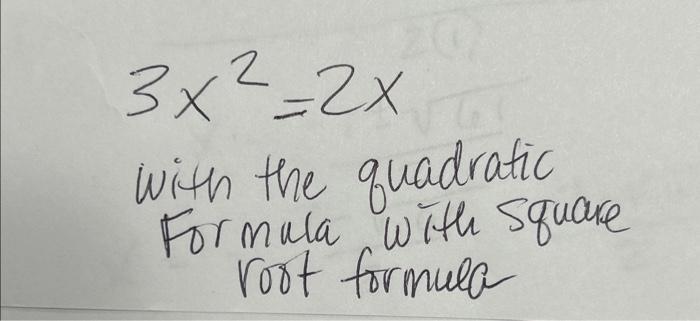 3x² = 2x
with the quadratic
Formula with square
root formula